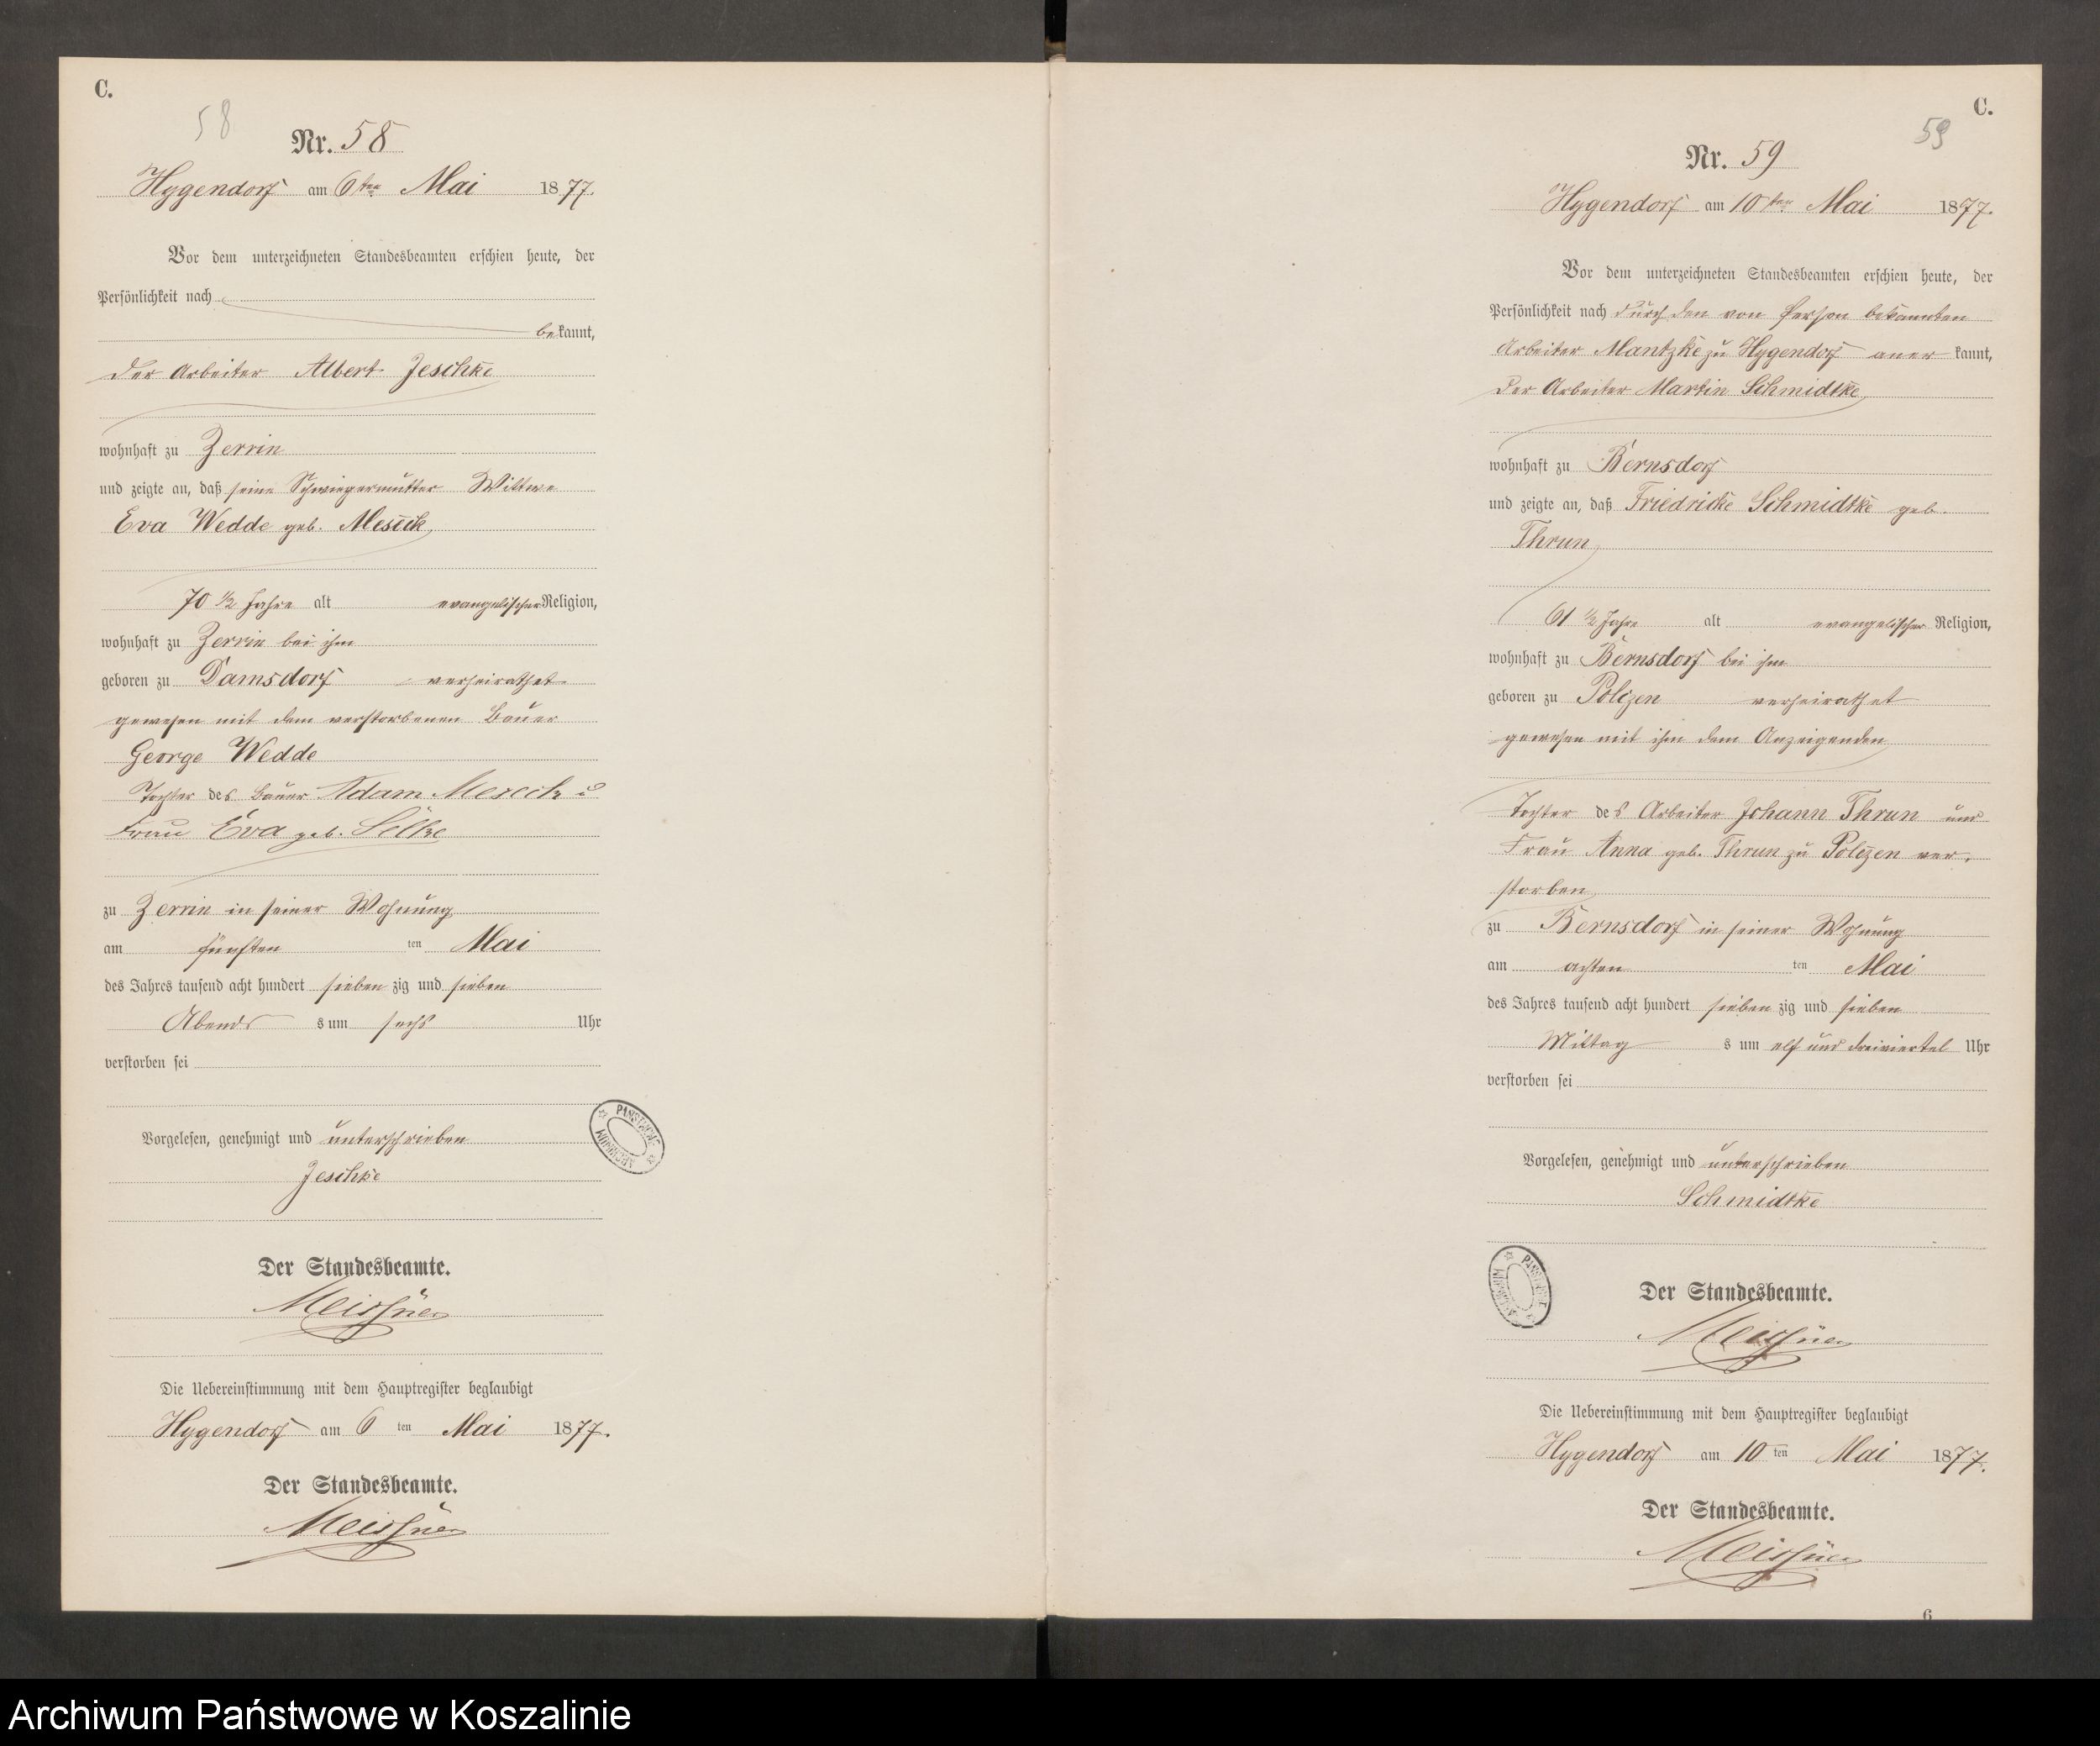 C.
58
Nr. 58
Hygendorf am 6ten Mai 1877.
Vor dem unterzeichneten Standesbeamten erschien heute, der
Persönlichkeit nach
bekannt,
der Arbeiter Albert Jeschke
wohnhaft zu Zerrin
und zeigte an, daß seine Schwiegermutter Wittwe
Eva Wedde geb. Meseck
70 1/2 Jahre alt evangelischer Religion,
wohnhaft zu Zerrin bei ihm
geboren zu Damsdorf verheirathet
gewesen mit dem verstorbenen Bauer
George Wedde
Tochter des Bauer Adam Meseck u
Frau Eva geb.
zu Zerrin in seiner Wohnung
am fünften ten Mai
des Jahres tausend acht hundert sieben zig und sieben
Abends um sechs Uhr
verstorben sei
Vorgelesen, genehmigt und unterschrieben
Jeschke
Der Standesbeamte.
Meissner
Die Uebereinstimmung mit dem Hauptregister beglaubigt
Hygendorf am 6 ten Mai 1877.
Der Standesbeamte.
Meissner
PAŃSTWOWE ARCHIWUM
C.
59
Nr. 59
Hygendorf am 10ten Mai 1877.
Vor dem unterzeichneten Standesbeamten erschien heute, der
Persönlichkeit nach durch den von Person bekannten
Arbeiter Mantzke zu Hygendorf aner kannt,
der Arbeiter Martin Schmidtke
wohnhaft zu Bernsdorf
und zeigte an, daß Friedricke Schmidtke geb.
Thrun
61 1/2 Jahre alt evangelischer Religion,
wohnhaft zu Bernsdorf bei ihm
geboren zu Polczen verheirathet
gewesen mit ihm dem Anzeigenden
Tochter des Arbeiter Johann Thrun und
Frau Anna geb. Thrun zu Polczen ver-
storben
zu Bernsdorf in seiner Wohnung
am achten ten Mai
des Jahres tausend acht hundert sieben zig und sieben
Mittag s um elf und dreiviertel Uhr
verstorben sei
Vorgelesen, genehmigt und unterschrieben
Schmidtke
Der Standesbeamte.
Meissner
Die Uebereinstimmung mit dem Hauptregister beglaubigt
Hygendorf am 10 ten Mai 1877.
Der Standesbeamte.
Meissner
6
Archiwum Państwowe w Koszalinie